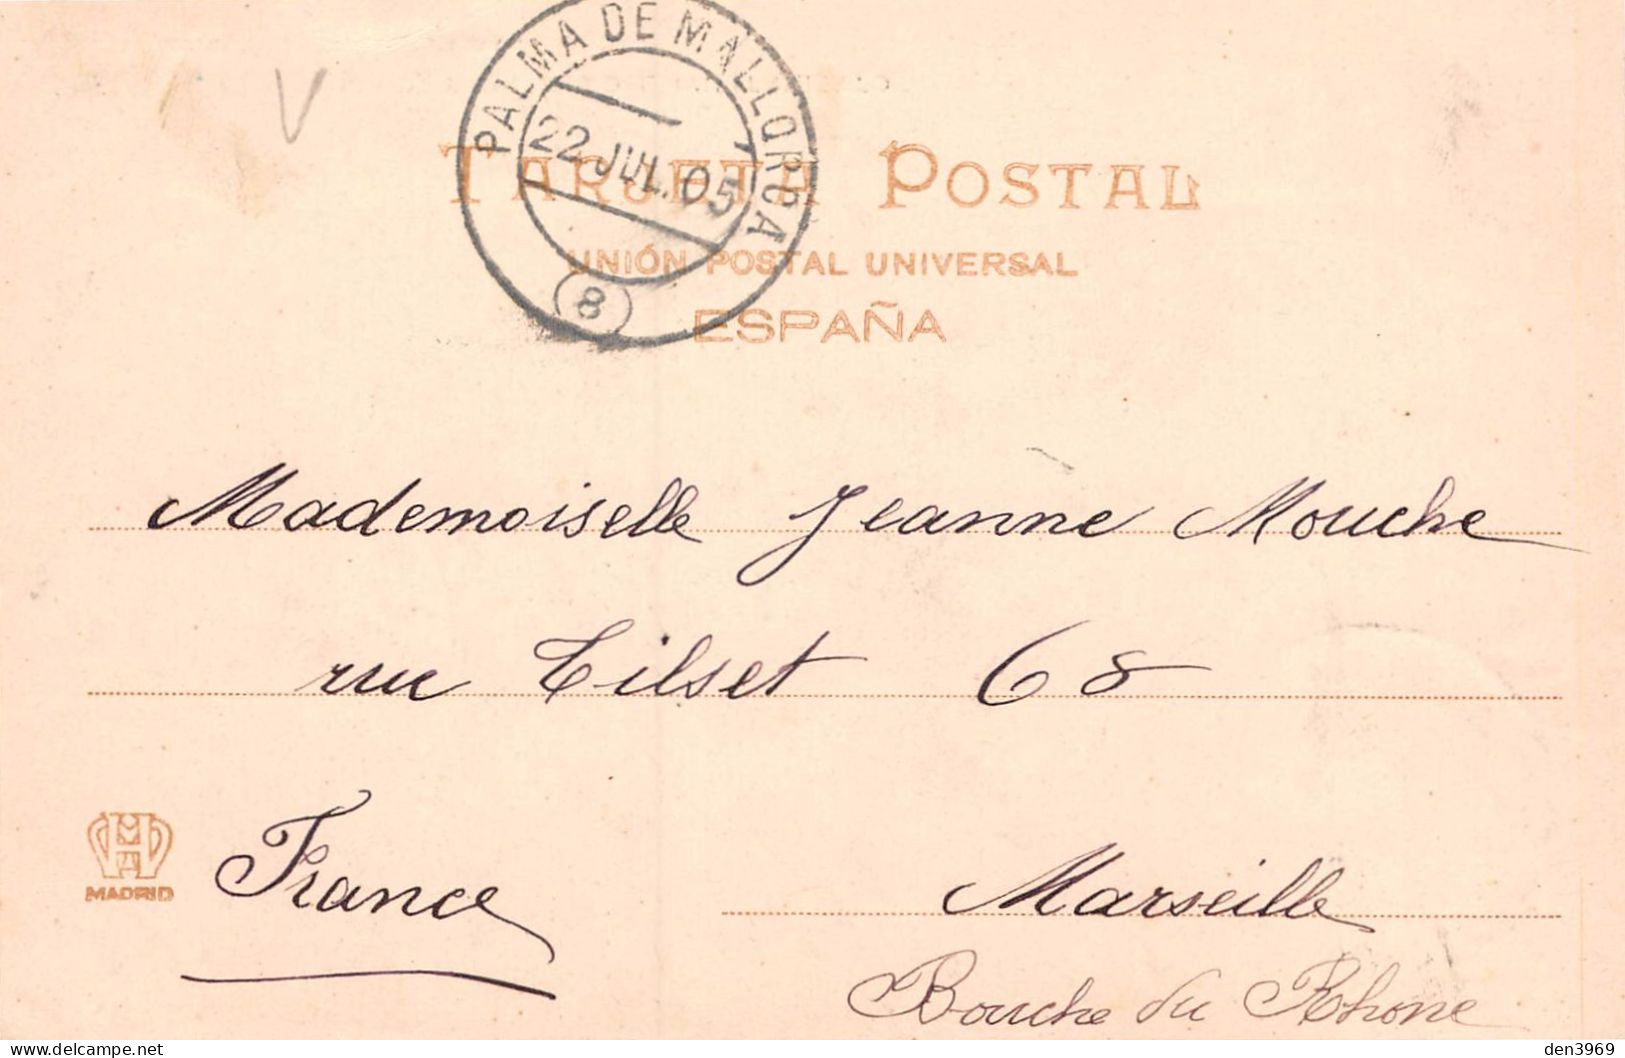 V
PALMA DE MALLORCA
22 JUL. 05
8
TARJETA POSTAL
UNIÓN POSTAL UNIVERSAL
ESPAÑA
Mademoiselle Jeanne Mouche
rue Tilset 68
MADRID
France
Marseille
Bouche du Rhone
www.delcampe.net
den3969